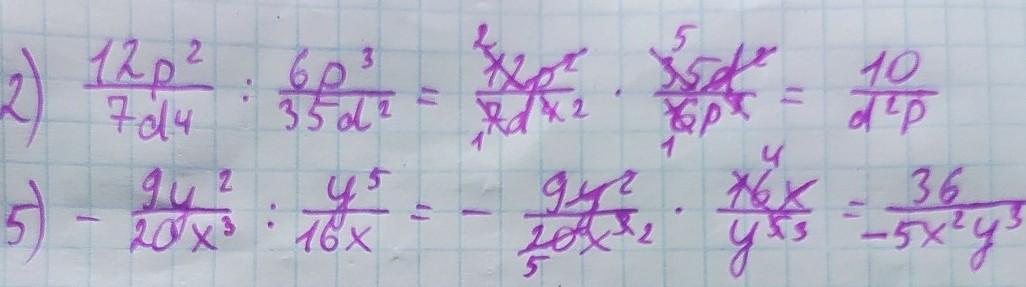 2) 12p²/7d⁴ : 6p³/35d² = 12p²/7d⁴ · 35d²/6p³ = 10/d²p
5) - 9y²/20x³ : y⁵/16x = - 9y²/20x³ · 16x/y⁵ = 36/-5x²y³